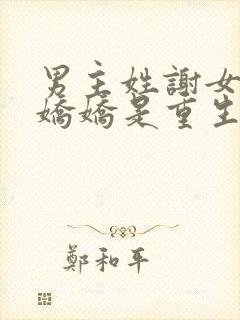 男主姓謝女
嬌嬌是重生
鄭和平